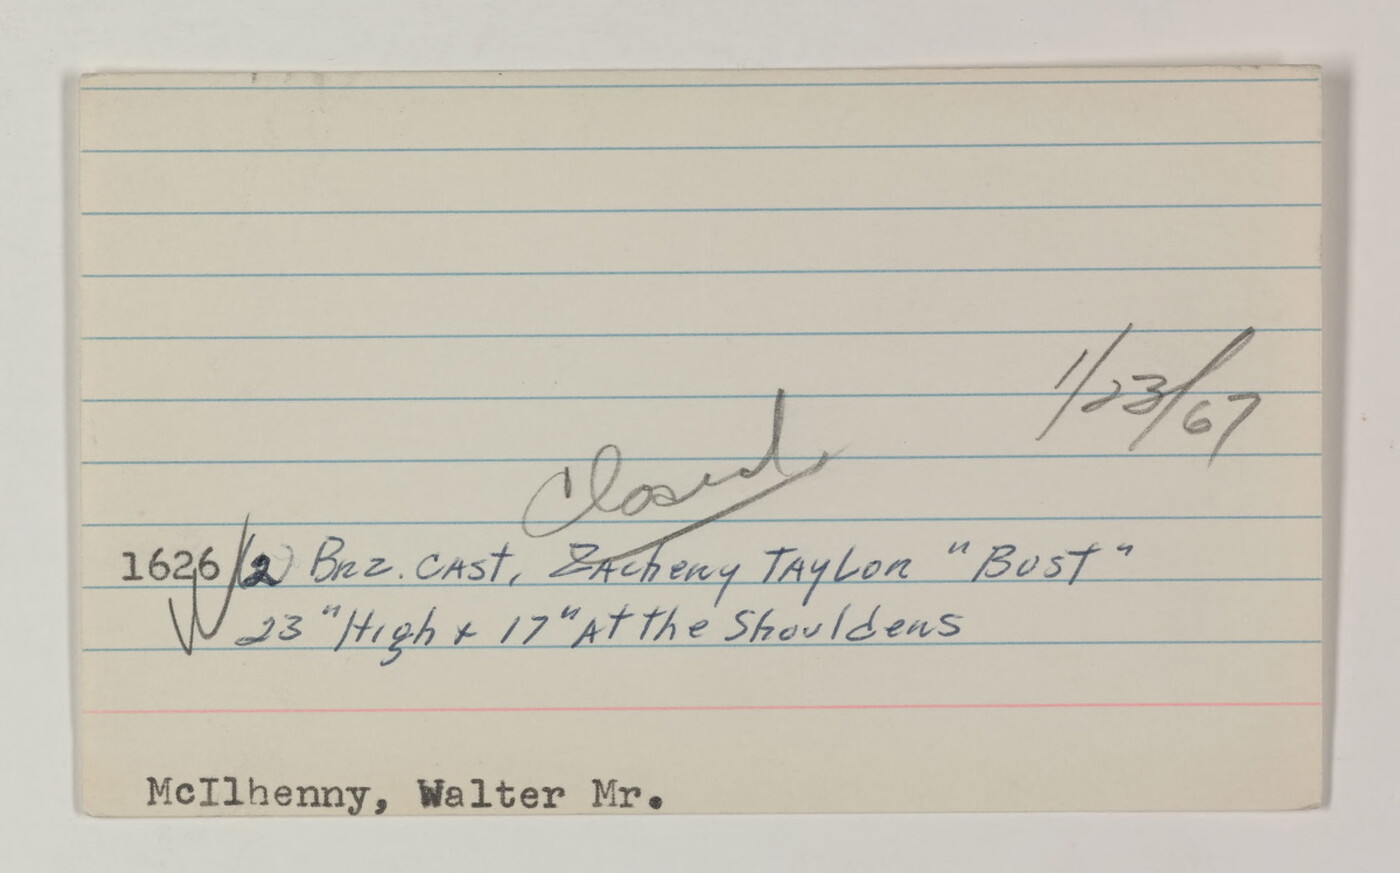 1/23/67
Closed
1626 (2) Brz. CAst, ZAcheny TAyLor "Bust"
23 "High & 17" At the Shoulders
McIlhenny, Walter Mr.